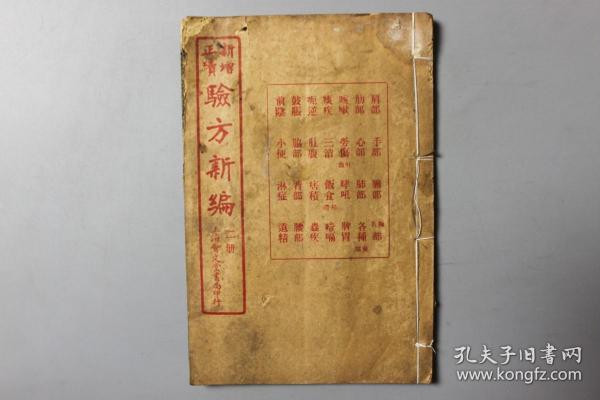 新增
正續
驗方新編
二册
上海會文堂書局印行
肩部 手部 部
肋部 心部 肺部 各種
咳嗽 勞傷 哮吼 脾胃
痰疾 三消 飯食 噎嗝
呃逆 肚腹 痞積 蟲疾
鼓脹 脇部 脊部 腰部
前陰 小便 淋症 遺精
孔夫子旧书网
www.kongfz.com